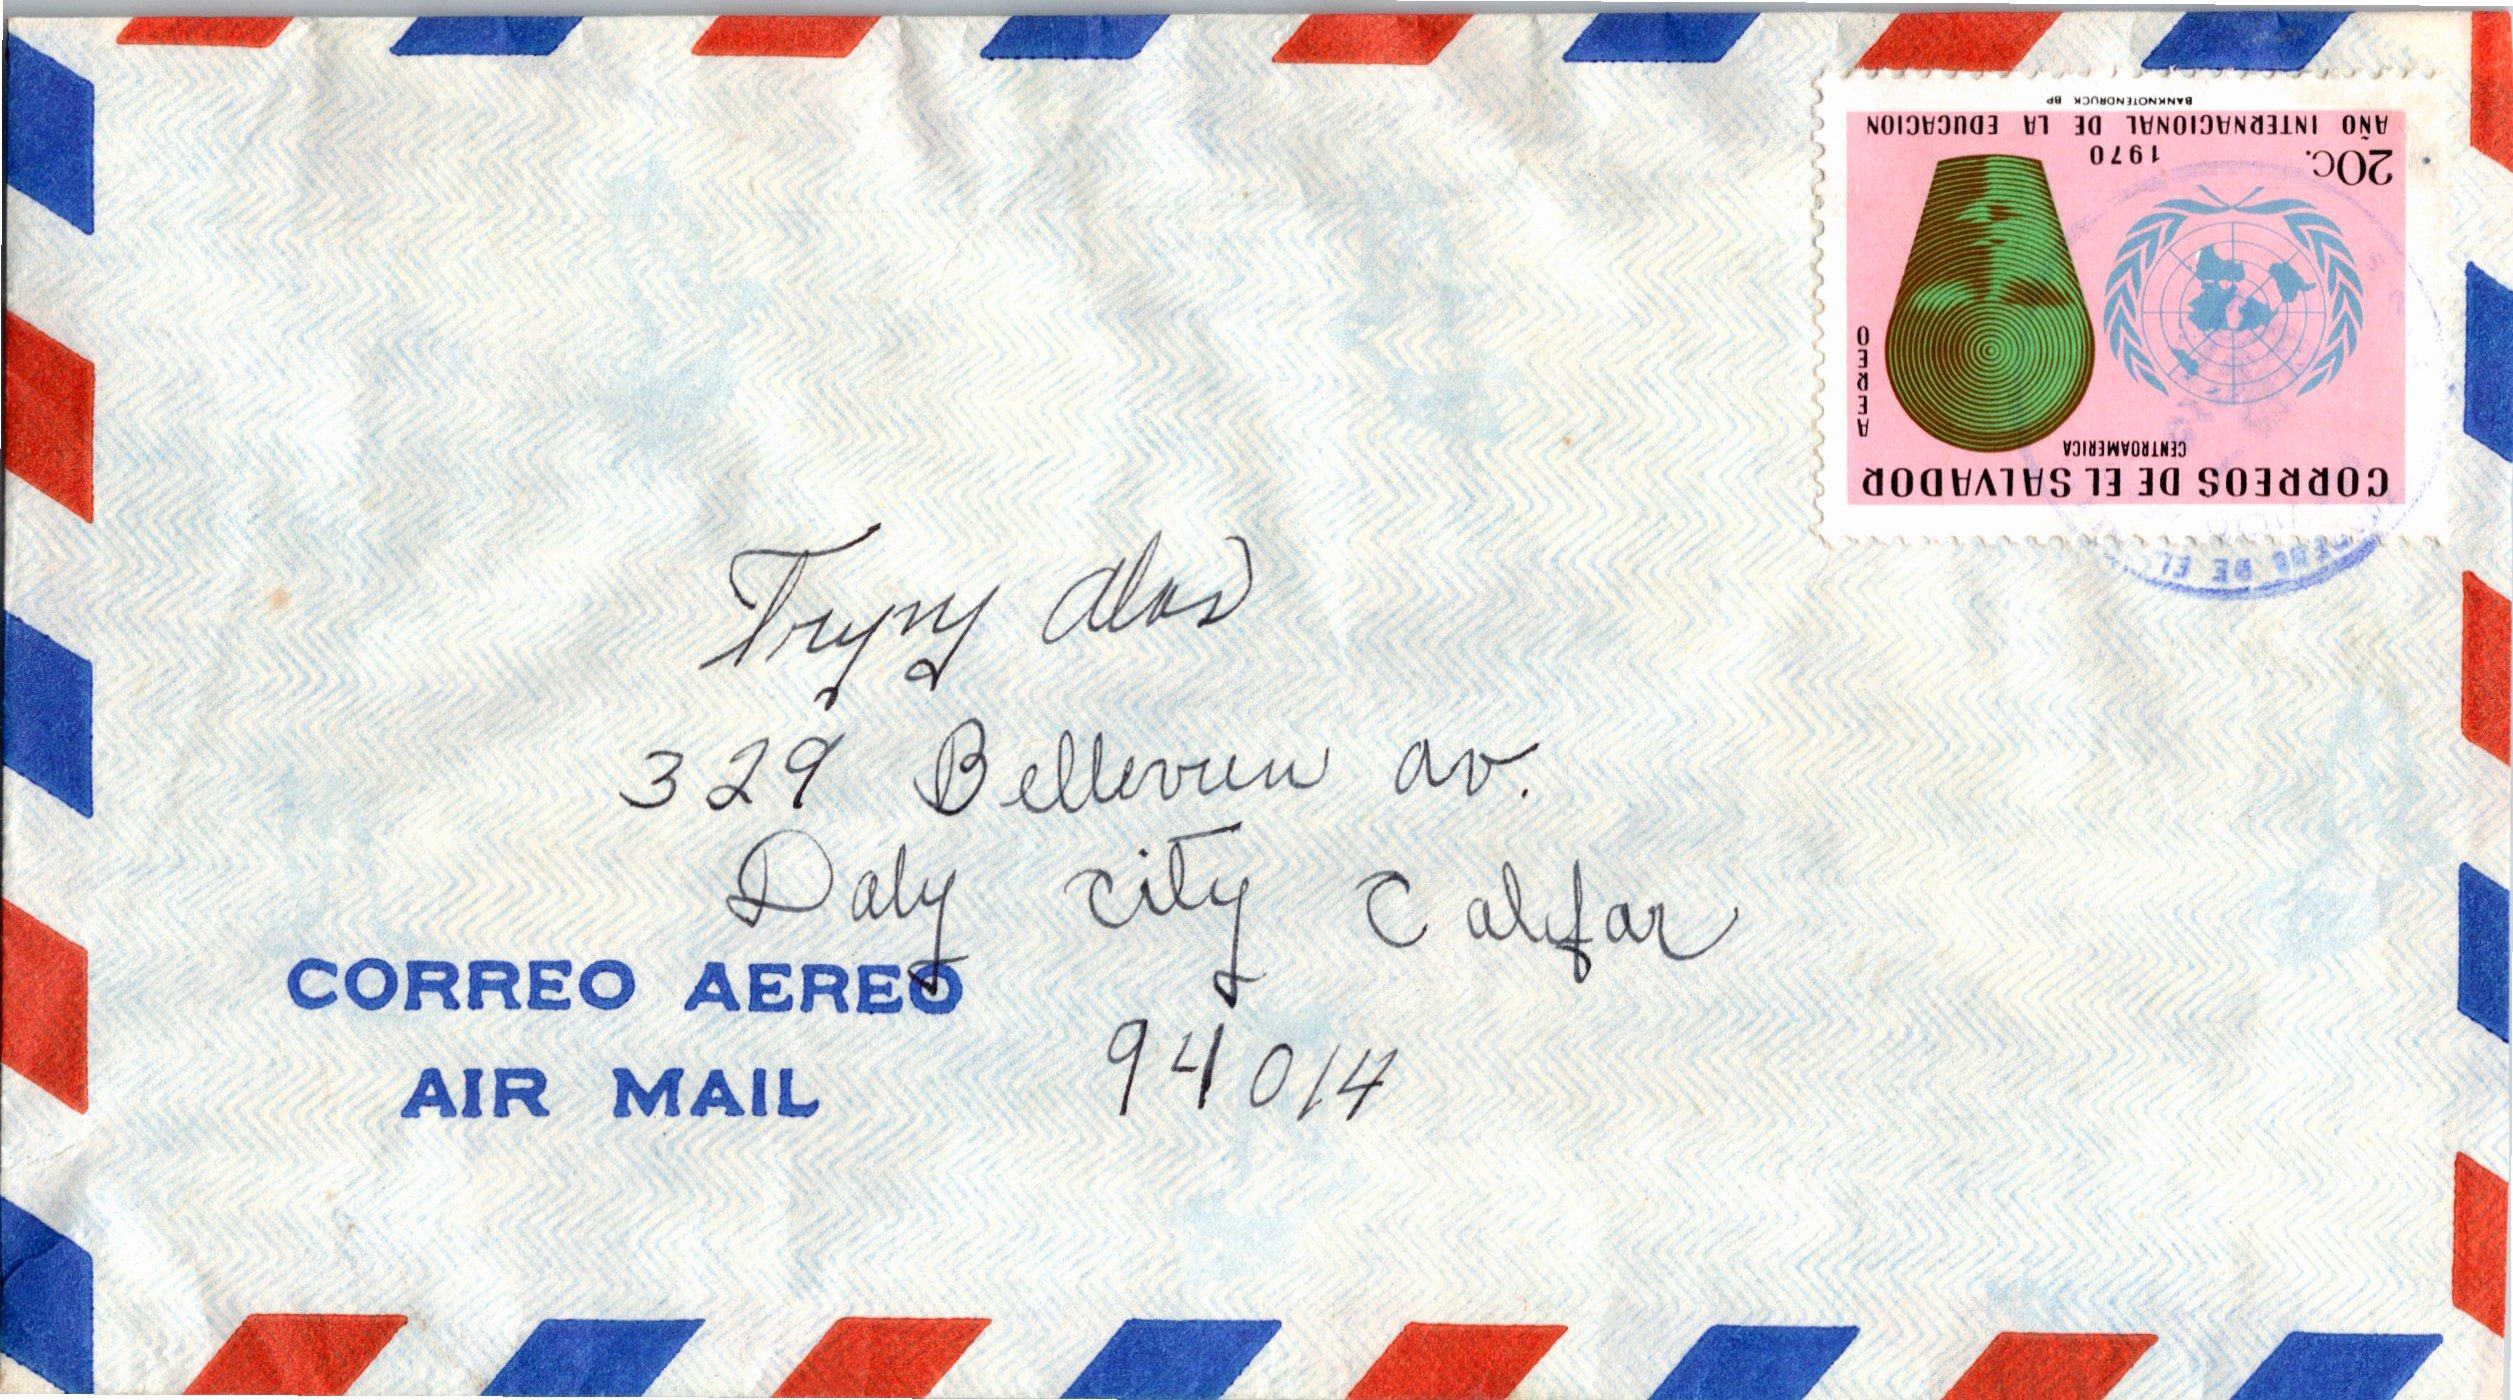 BANKNOTENDRUCK BP
AÑO INTERNACIONAL DE LA EDUCACION
1970
20C.
AEREO
CENTROAMERICA
CORREOS DE EL SALVADOR
DE EL
329 Bellevuen av.
Daly City Califar
94014
CORREO AEREO
AIR MAIL